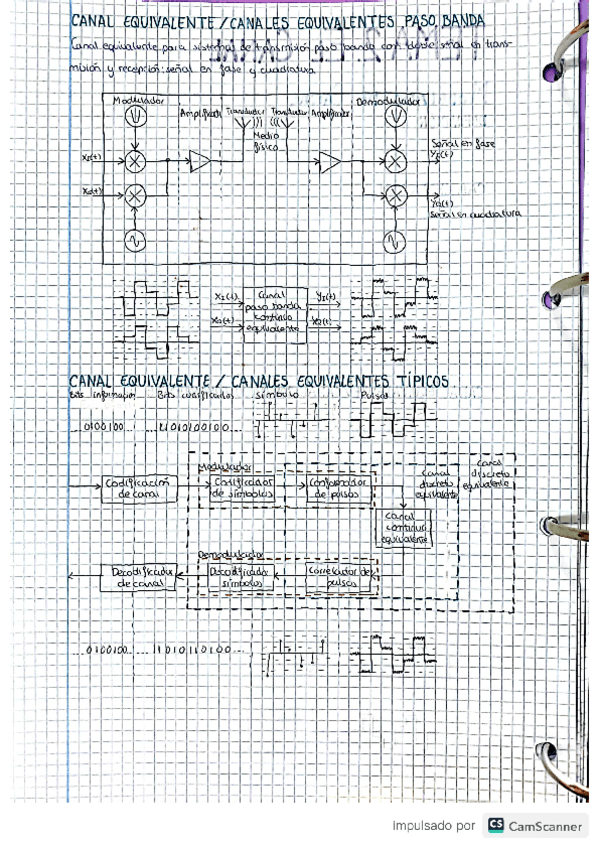 CANAL EQUIVALENTE / CANALES EQUIVALENTES PASO BANDA
Canal equivalente para sistemas de transmisión paso banda con doble señal en trans-
misión y recepción: señal en fase y cuadratura
Modulador
Demodulador
Amplificador Transductor Transductor Amplificador
Medio
físico
XI(t)
XQ(t)
Señal en fase
YI(t)
YQ(t)
Señal en cuadratura
XI(t)
XQ(t)
Canal
paso banda
continuo
equivalente
YI(t)
YQ(t)
CANAL EQUIVALENTE / CANALES EQUIVALENTES TÍPICOS
Bits información Bits codificados Símbolo Pulsos
...0100100... ...11010100100...
Modulador
Codificación
de canal
Codificador
de símbolos
Conformador
de pulsos
Canal
discreto
equivalente
Canal
discreto
equivalente
Canal
continuo
equivalente
Demodulador
Decodificador
de canal
Decodificador
símbolos
Correlador de
pulsos
...0100100... ...11010110100...
Impulsado por CS CamScanner